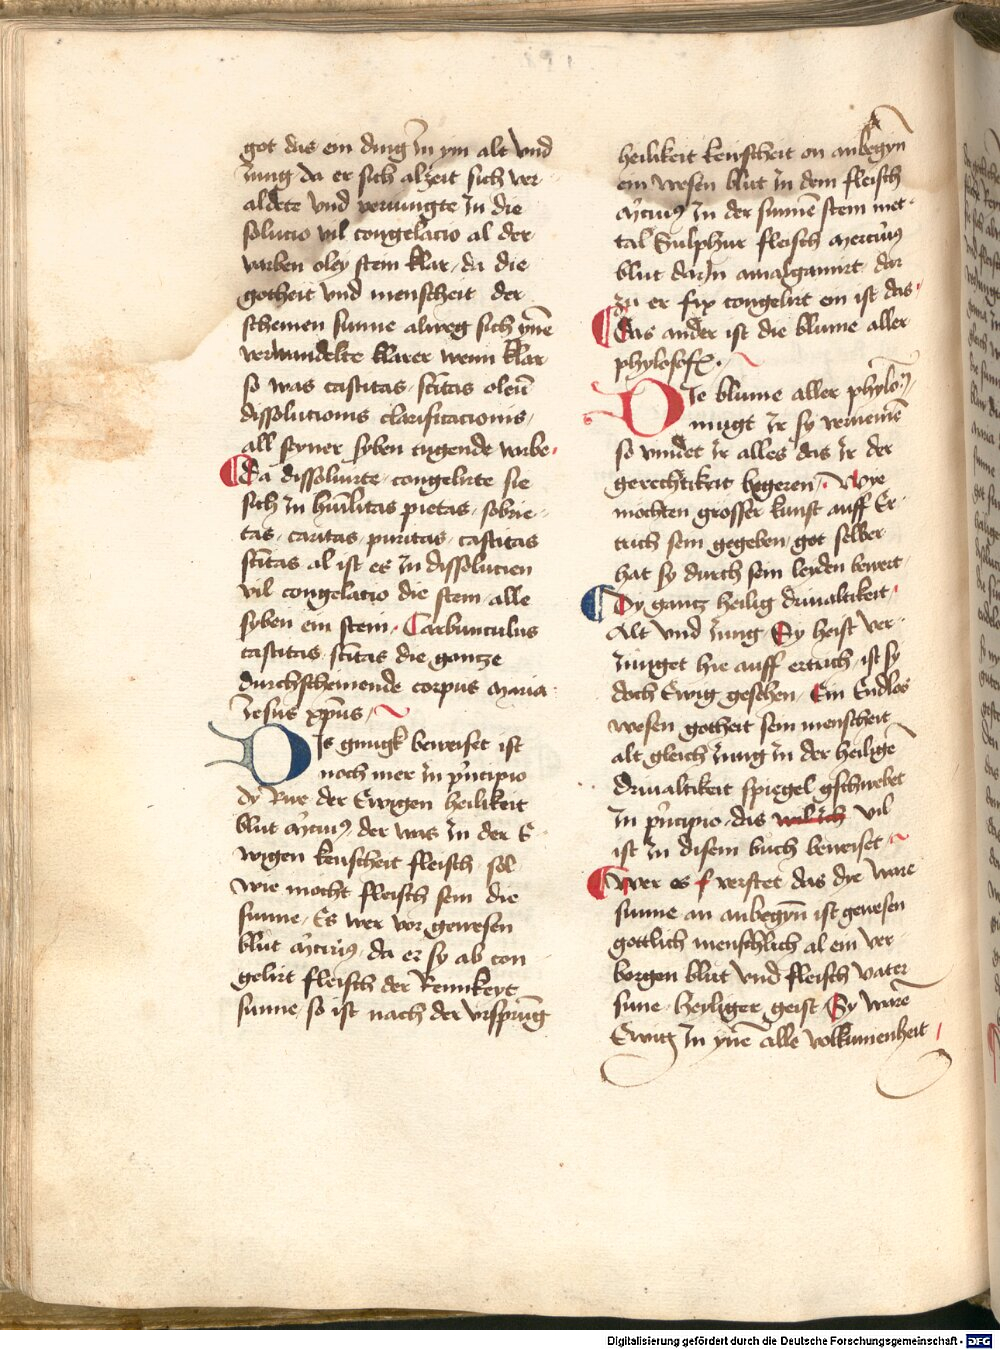 got das ein ding Jn ym alt vnd
Jung da er sich alzeit sich ver
aldete vnd veriungte Jn die
solucio vil congelacio al der
varben oley stein klar da die
gotheit vnd menscheit der
scheinen sunne alweg sich yn̄e
verwandelte klarer wenn klar
so was castitas sc̄itas oleū
dissolucionis clarificacionis
all seyner syben tugende varbe
Da dissoluirte congelirte sie
sich Jn humilitas pietas sobrie
tas caritas puritas castitas
sc̄itas al ist es Jn dissolucien
vil congelacio die stein alle
syben ein stein Carbunculus
castitas sc̄itas die gantze
durchscheinende corpus maria
Jesus xp̄us
Dis ginugk beweiset ist
noch mer Jn p̄ncipio
dy Rue der Ewigen heilikeit
blut der was Jn der E
wigen keuscheit fleisch sol
wie mocht fleisch sein die
sunne Es wer vor gewesen
blut da er sy ab con
gelirt fleisch der Reinikeyt
sunne so ist nach der vrsprūg
heilikeit keuscheit on anbegyn
ein wesen blut Jn dem fleisch
Jn der sunnē stein met
tal Sulphur fleisch mercurius
blut darJn amalgamirt dar
zu er fix congelirt ein ist das
Das ander ist die blume aller
phylosof
Die blume aller phylo
mugt Jr sy vernemē
so vindet Jr alles das Jr der
gerechtikeit begeren Wye
mochten grosser kunst auff Er
trich sein gegeben got selber
hat sy durch sein leyden bewert
Dy gantz heilig driualtikeit
Alt vnd Jung Sy heist ver
Junget hie auff ertrich ist sy
doch Ewig gesehen Ein Endlos
wesen gotheit sein menscheit
alt gleich Jung Jn der heiligē
driualtikeit spiegel gschwebet
Jn p̄ncipio das vil
ist Jn disem buch beweiset
Wer es verstet das dye ware
sunne an anbegyn̄ ist gewesen
gottlich menschlich al ein ver
borgen blut vnd fleisch vater
sune heyliger geist Sy warē
Ewig Jn yn̄e alle volkumenheit
Digitalisierung gefördert durch die Deutsche Forschungsgemeinschaft - DFG